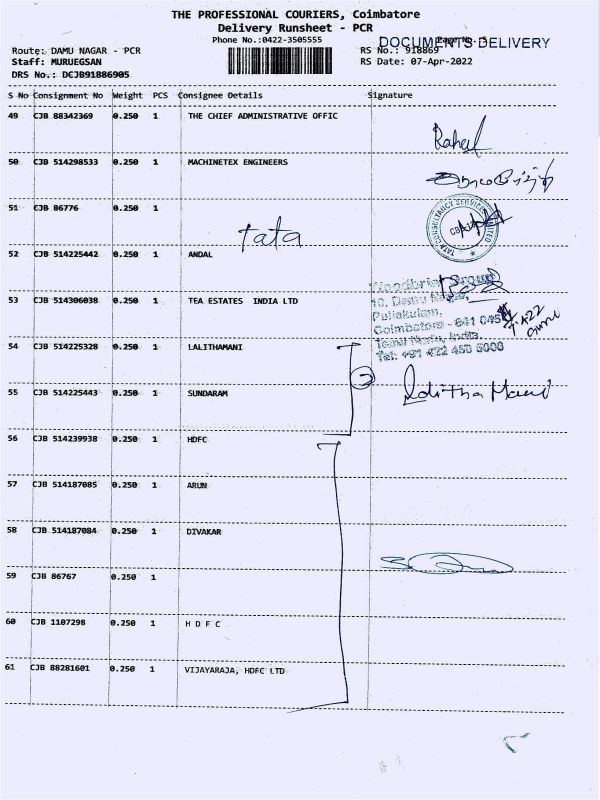 THE PROFESSIONAL COURIERS, Coimbatore
Delivery Runsheet - PCR
Phone No.:0422-3505555
DOCUMENTS DELIVERY
Route: DAMU NAGAR - PCR
RS No.: 918869
Staff: MURUEGSAN
RS Date: 07-Apr-2022
DRS No.: DCJB91886905
S No Consignment No Weight PCS Consignee Details Signature
49 CJB 88342369 0.250 1 THE CHIEF ADMINISTRATIVE OFFIC
Rahul
50 CJB 514298533 0.250 1 MACHINETEX ENGINEERS
51 CJB 86776 0.250 1
Tata
TATA CONSULTANCY SERVICES LIMITED
52 CJB 514225442 0.250 1 ANDAL
Woodbriar Group
10, Damu Nagar,
53 CJB 514306038 0.250 1 TEA ESTATES INDIA LTD
Puliakulam,
Coimbatore - 641 045
Tamil Nadu, India.
Tel: +91 422 450 5000
54 CJB 514225328 0.250 1 LALITHAMANI
55 CJB 514225443 0.250 1 SUNDARAM
56 CJB 514239938 0.250 1 HDFC
57 CJB 514187085 0.250 1 ARUN
58 CJB 514187084 0.250 1 DIVAKAR
59 CJB 86767 0.250 1
60 CJB 1107298 0.250 1 H D F C
61 CJB 88281601 0.250 1 VIJAYARAJA, HDFC LTD